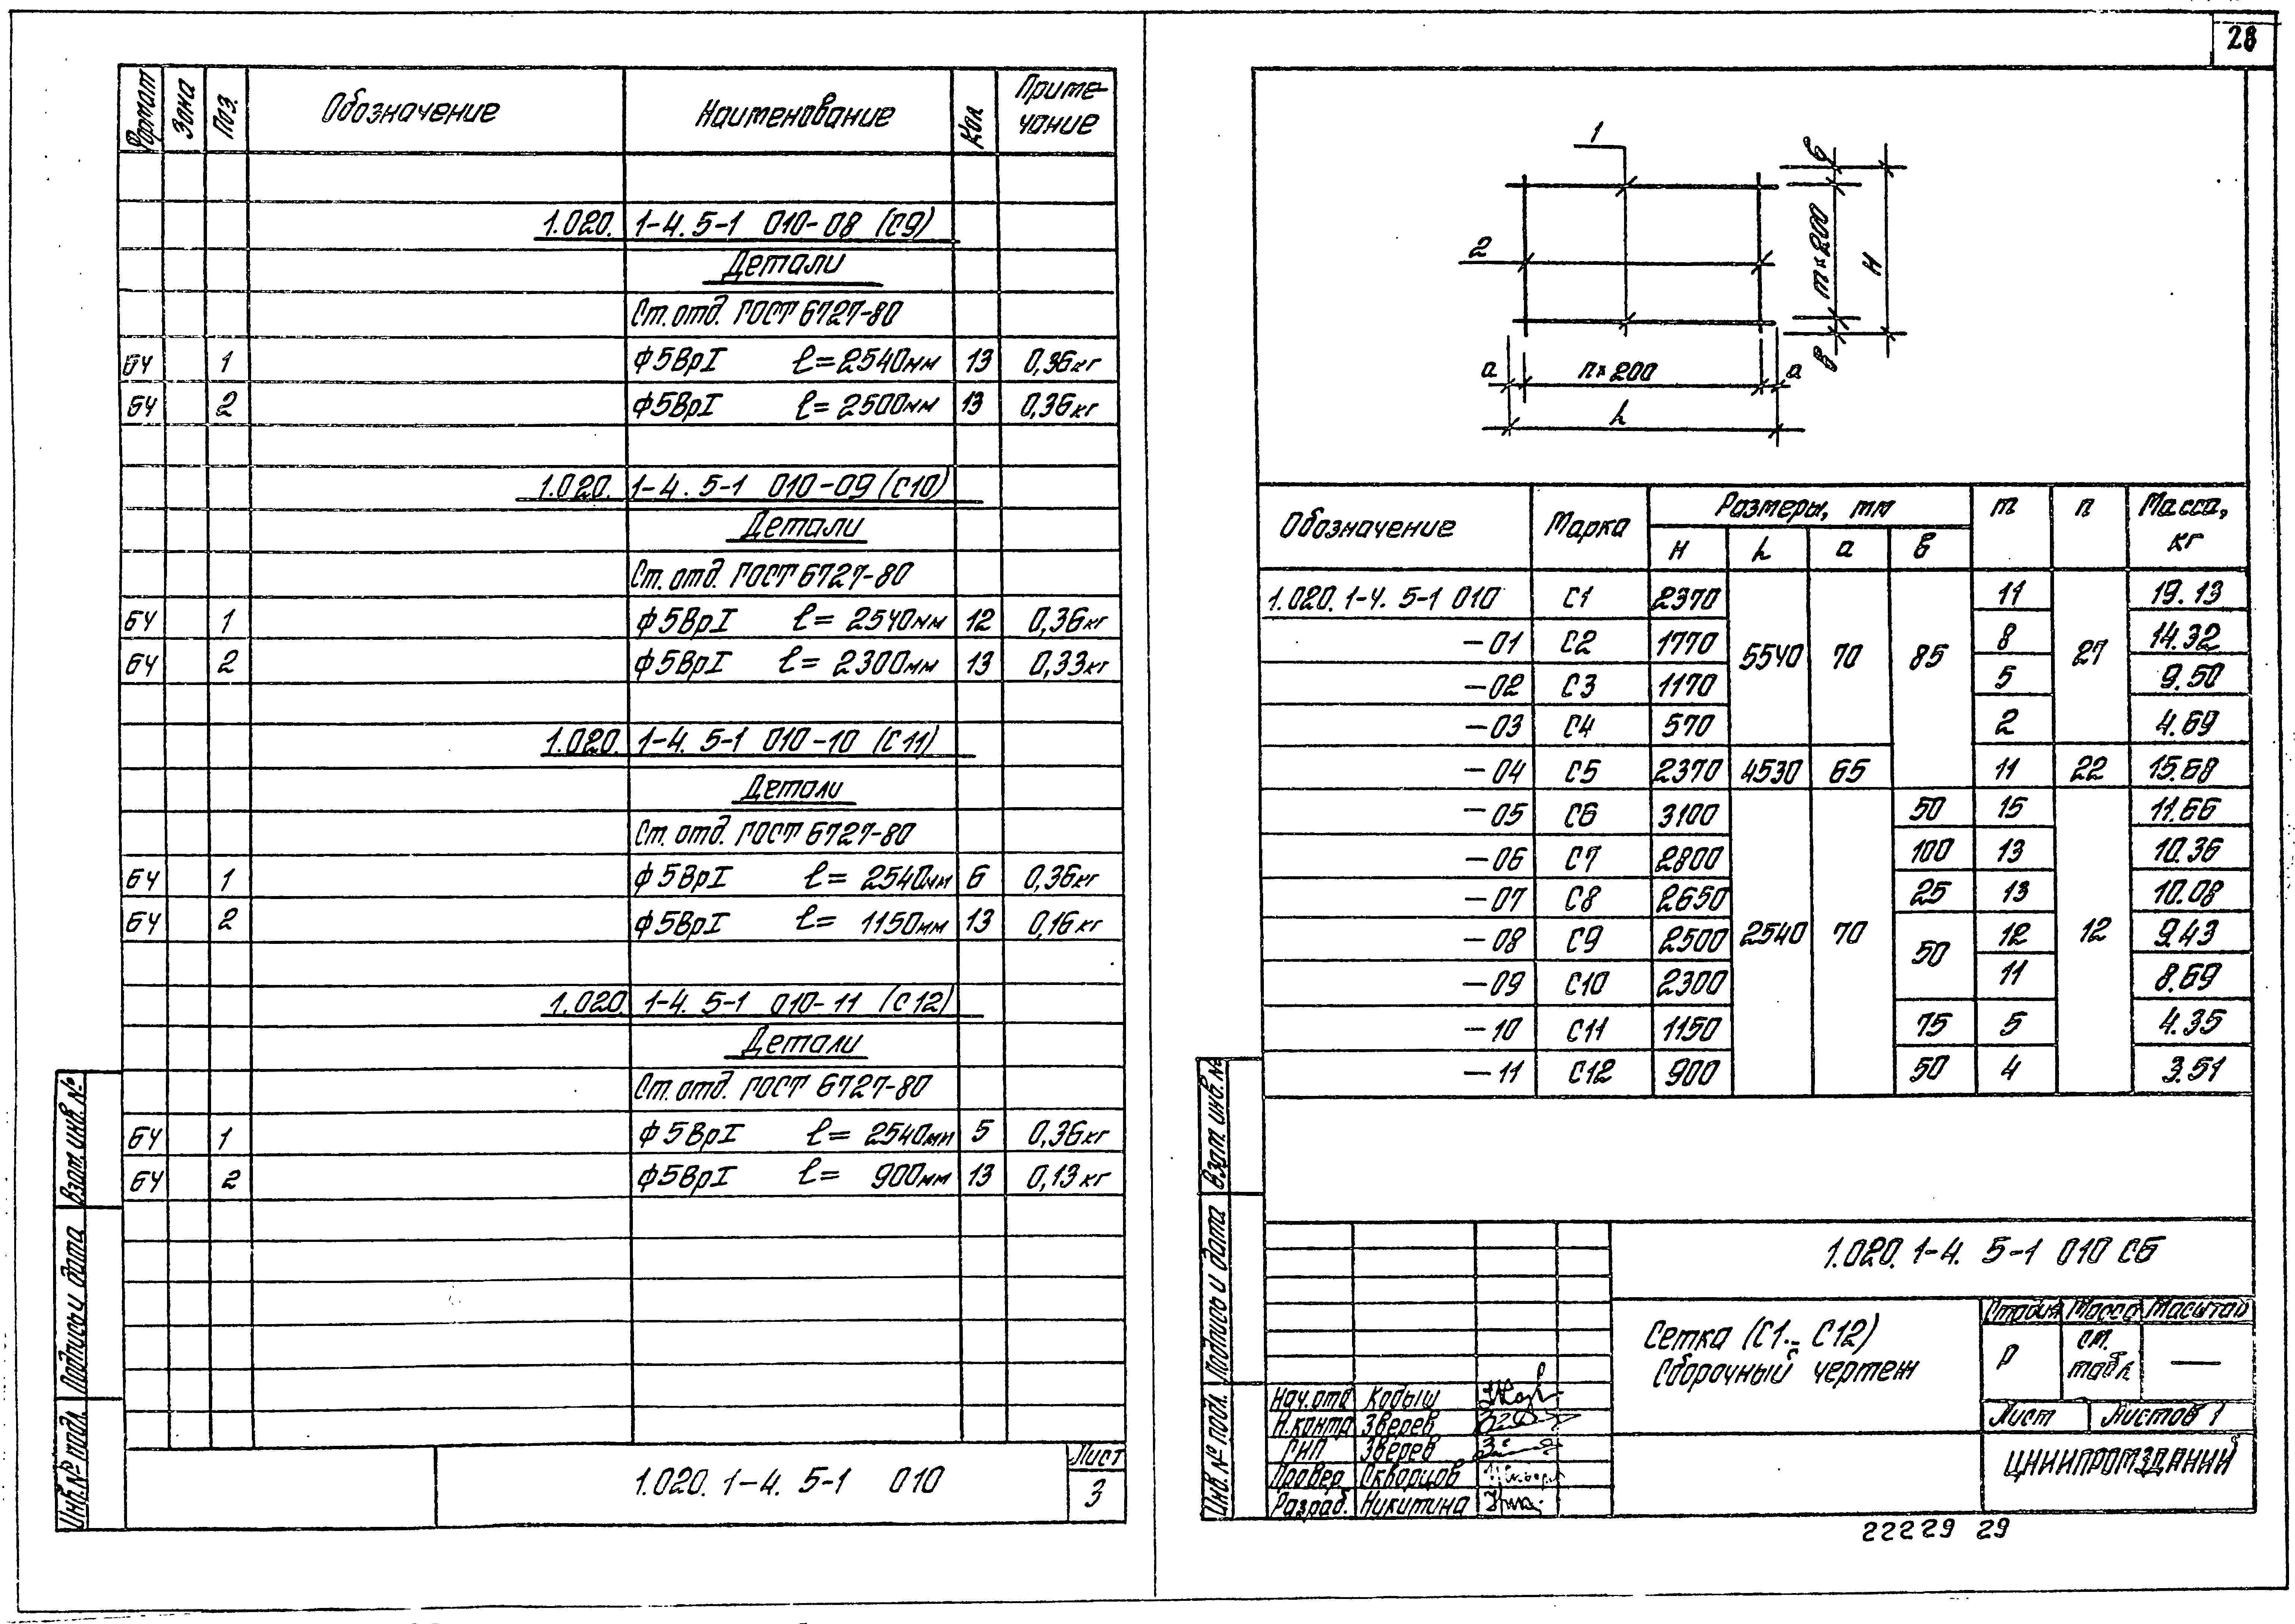 28
Формат Зона Поз. Обозначение Наименование Кол Приме-
чание
1.020. 1-4. 5-1 010-08 (С9)
Детали
Ст. отд. ГОСТ 6727-80
БЧ 1 ф5ВрI ℓ=2540мм 13 0,36кг
БЧ 2 ф5ВрI ℓ=2500мм 13 0,36кг
1.020. 1-4. 5-1 010-09 (С10)
Детали
Ст. отд. ГОСТ 6727-80
БЧ 1 ф5ВрI ℓ=2540мм 12 0,36кг
БЧ 2 ф5ВрI ℓ=2300мм 13 0,33кг
1.020. 1-4. 5-1 010-10 (С11)
Детали
Ст. отд. ГОСТ 6727-80
БЧ 1 ф5ВрI ℓ=2540мм 6 0,36кг
БЧ 2 ф5ВрI ℓ=1150мм 13 0,16кг
1.020. 1-4. 5-1 010-11 (С12)
Детали
Ст. отд. ГОСТ 6727-80
БЧ 1 ф5ВрI ℓ=2540мм 5 0,36кг
БЧ 2 ф5ВрI ℓ=900мм 13 0,13кг
Взам. инв. №
Подпись и дата
Инв. № подл.
1.020. 1-4. 5-1 010
Лист
3
1
2
в
m×200
H
в
a n×200 a
L
Обозначение Марка Размеры, мм m n Масса,
кг
H L a в
1.020. 1-4. 5-1 010 С1 2370 5540 70 85 11 27 19.13
-01 С2 1770 8 14.32
-02 С3 1170 5 9.50
-03 С4 570 2 4.69
-04 С5 2370 4530 65 11 22 15.68
-05 С6 3100 2540 70 50 15 12 11.66
-06 С7 2800 100 13 10.36
-07 С8 2650 25 13 10.08
-08 С9 2500 50 12 9.43
-09 С10 2300 11 8.69
-10 С11 1150 75 5 4.35
-11 С12 900 50 4 3.51
Взам. инв. №
Подпись и дата
Инв. № подл.
1.020. 1-4. 5-1 010 СБ
Сетка (С1÷С12)
Сборочный чертеж
Стадия Масса Масштаб
Р см.
табл. —
Лист Листов 1
ЦНИИПРОМЗДАНИЙ
Нач.отд Кодыш
Н.контр Зверев
ГИП Зверев
Провер. Скворцов
Разраб. Никитина
22229 29